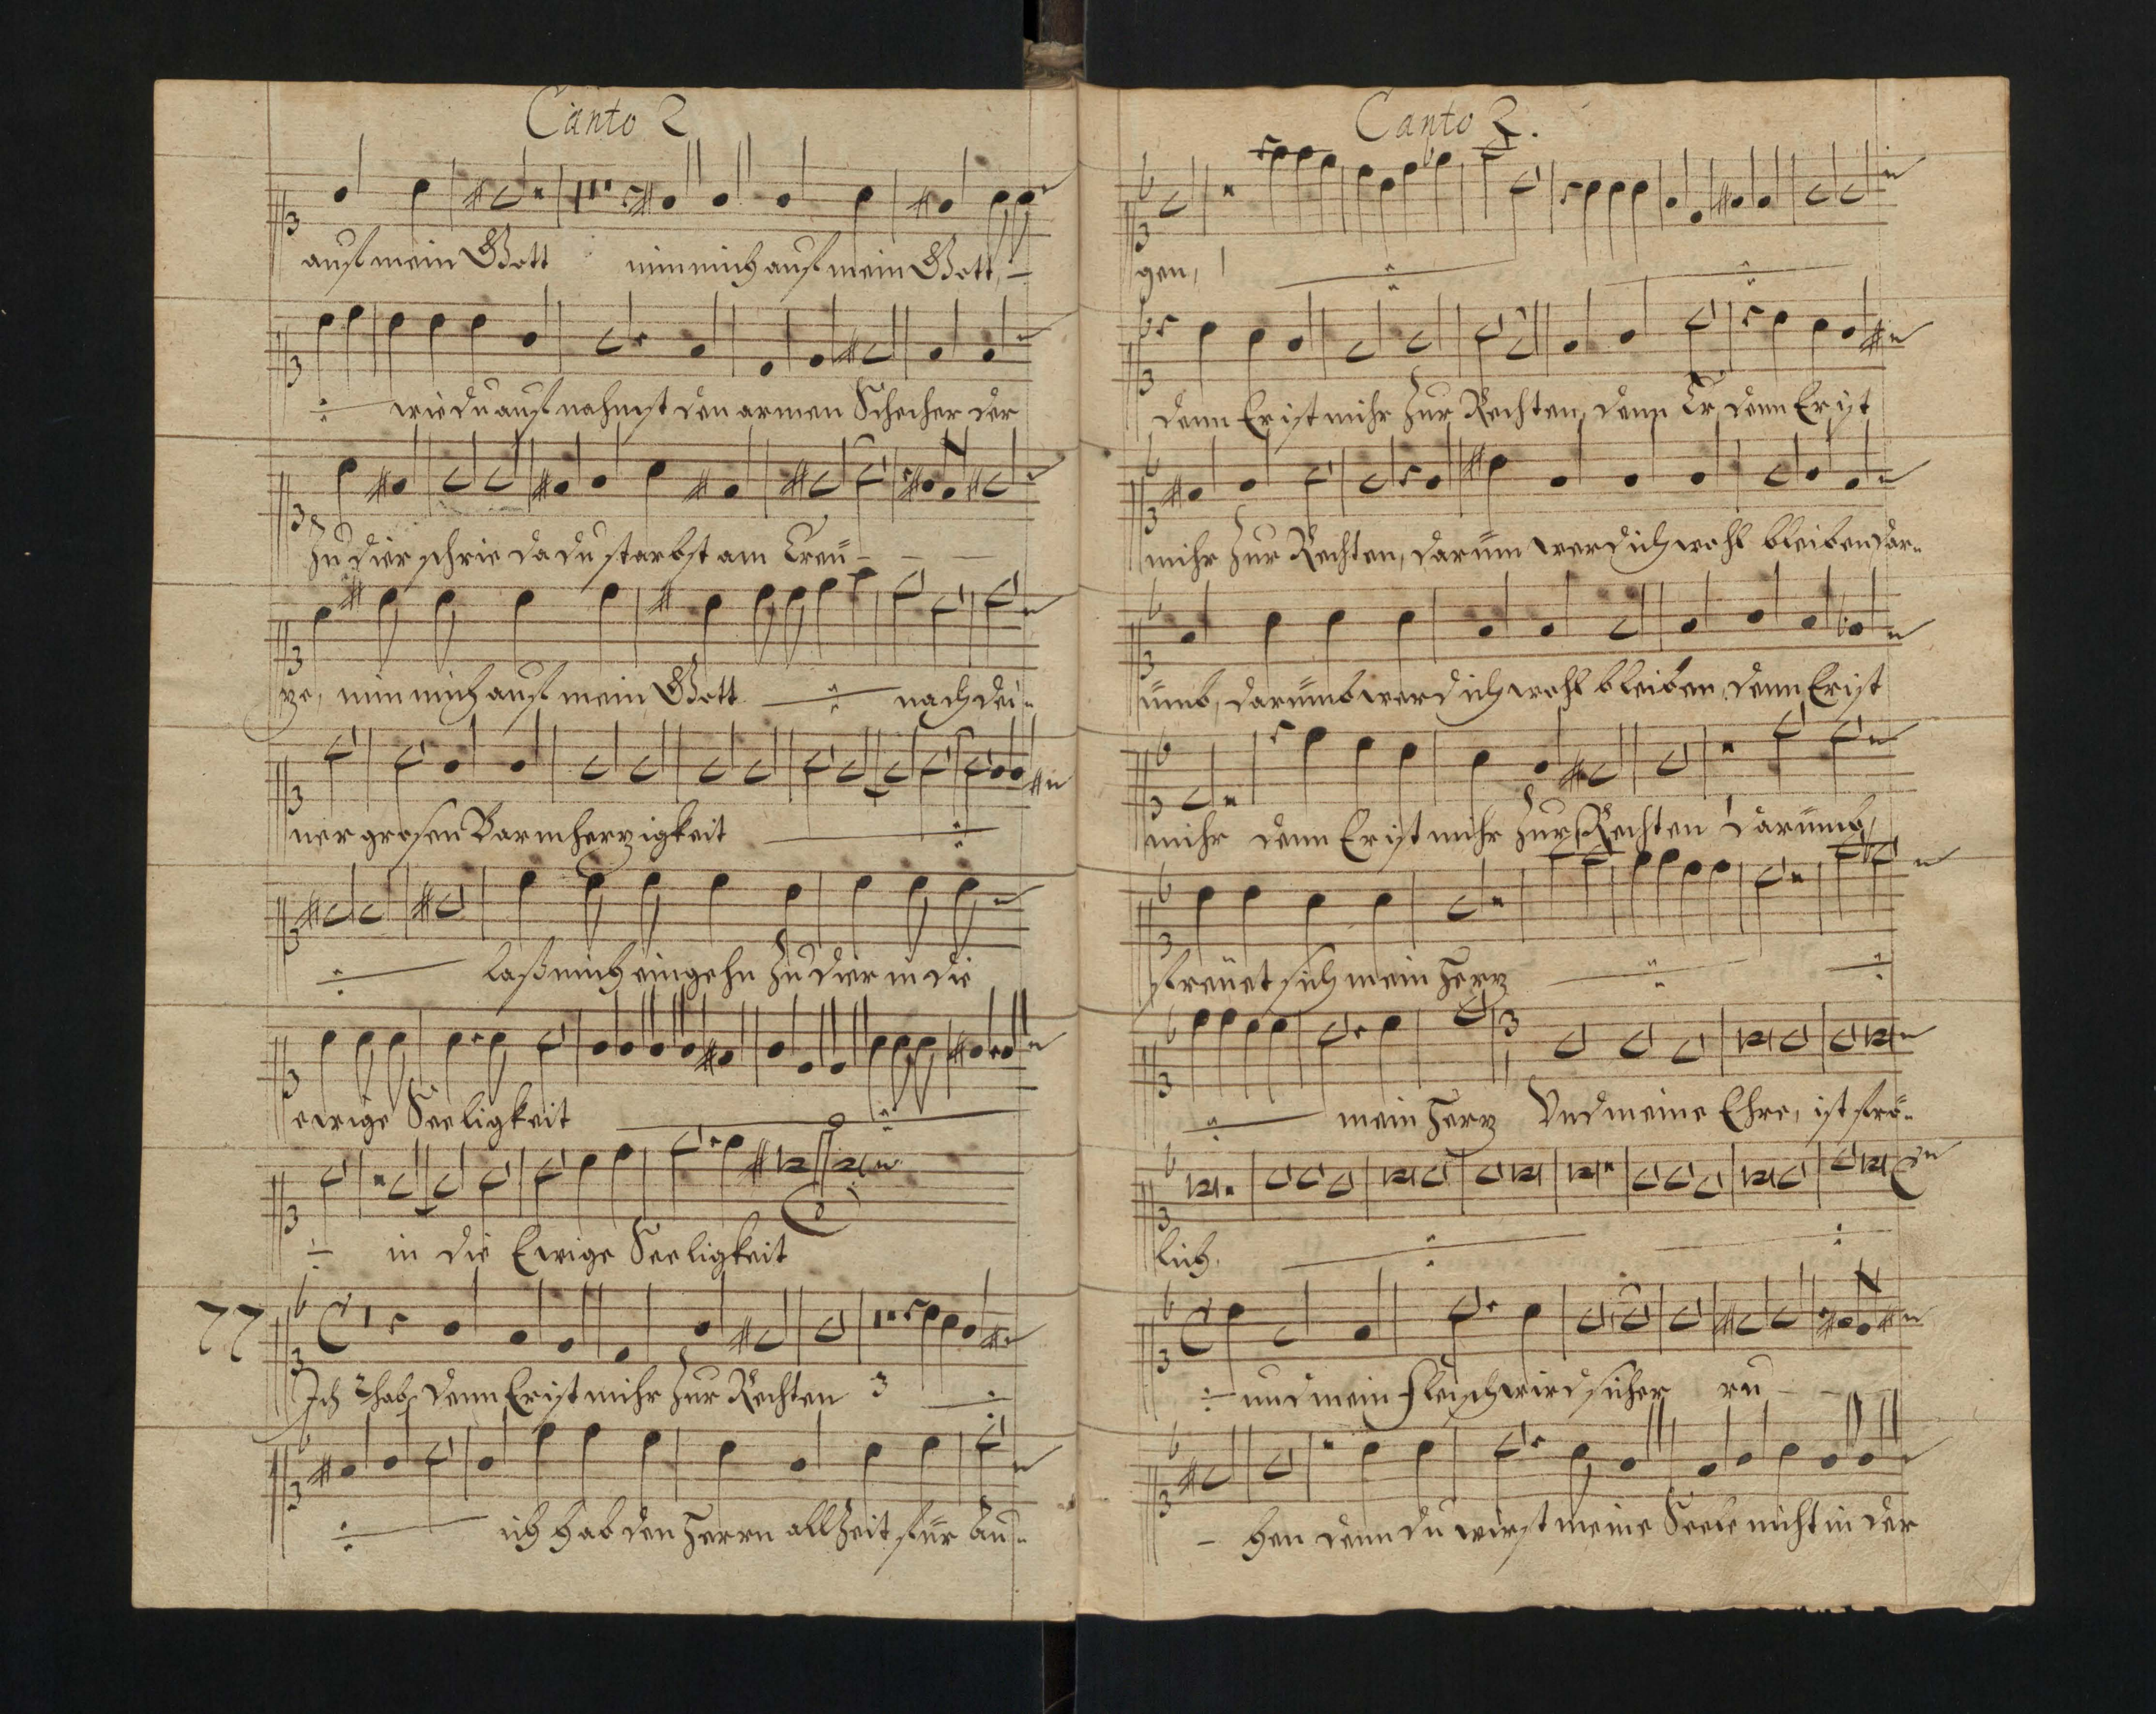 Canto 2
auf mein Gott nim mich auf mein Gott,
wie du auf nahmst den armen Schecher der
Zu dier schrie da du starbst am Creü-
ze, nim mich auf mein Gott nach dei-
ner grosen Barmherzigkeit
laß mich eingehn Zu dier in die
ewige Seeligkeit
in die Ewige Seeligkeit
77
Ich hab, denn Er ist mihr Zur Rechten 3
ich hab den Herrn all Zeit für Au-
Canto 2.
gen,
denn Er ist mihr Zur Rechten, denn Er, denn Er ist
mihr Zur Rechten, darüm werd ich wohl bleiben dar-
ümb, darümb werd ich wohl bleiben, denn Er ist
mihr denn Er ist mihr Zur Rechten Darümb,
freüet sich mein Herz
mein Herz Und meine Ehre, ist frö-
lich.
und mein fleisch wird sicher ru
- hen denn du wirst meine Seele nicht in der